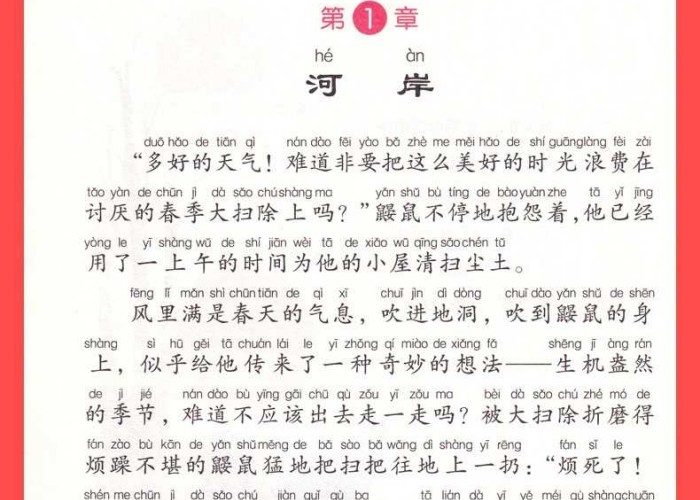 第1章
hé àn
河 岸
duō hǎo de tiān qì nán dào fēi yào bǎ zhè me měi hǎo de shí guāng làng fèi zài
“多好的天气！难道非要把这么美好的时光浪费在
tǎo yàn de chūn jì dà sǎo chú shàng ma yǎn shǔ bù tíng de bào yuàn zhe tā yǐ jīng
讨厌的春季大扫除上吗？”鼹鼠不停地抱怨着，他已经
yòng le yī shàng wǔ de shí jiān wèi tā de xiǎo wū qīng sǎo chén tǔ
用了一上午的时间为他的小屋清扫尘土。
fēng lǐ mǎn shì chūn tiān de qì xī chuī jìn dì dòng chuī dào yǎn shǔ de shēn
风里满是春天的气息，吹进地洞，吹到鼹鼠的身
shàng sì hū gěi tā chuán lái le yī zhǒng qí miào de xiǎng fǎ shēng jī àng rán
上，似乎给他传来了一种奇妙的想法——生机盎然
de jì jié nán dào bù yīng gāi chū qù zǒu yī zǒu ma bèi dà sǎo chú zhé mó de
的季节，难道不应该出去走一走吗？被大扫除折磨得
fán zào bù kān de yǎn shǔ měng de bǎ sào bǎ wǎng dì shàng yī rēng fán sǐ le
烦躁不堪的鼹鼠猛地把扫把往地上一扔：“烦死了！
shén me chūn jì dà sǎo chú jiàn guǐ qù ba tā lián dà yī yě méi gù shàng chuān